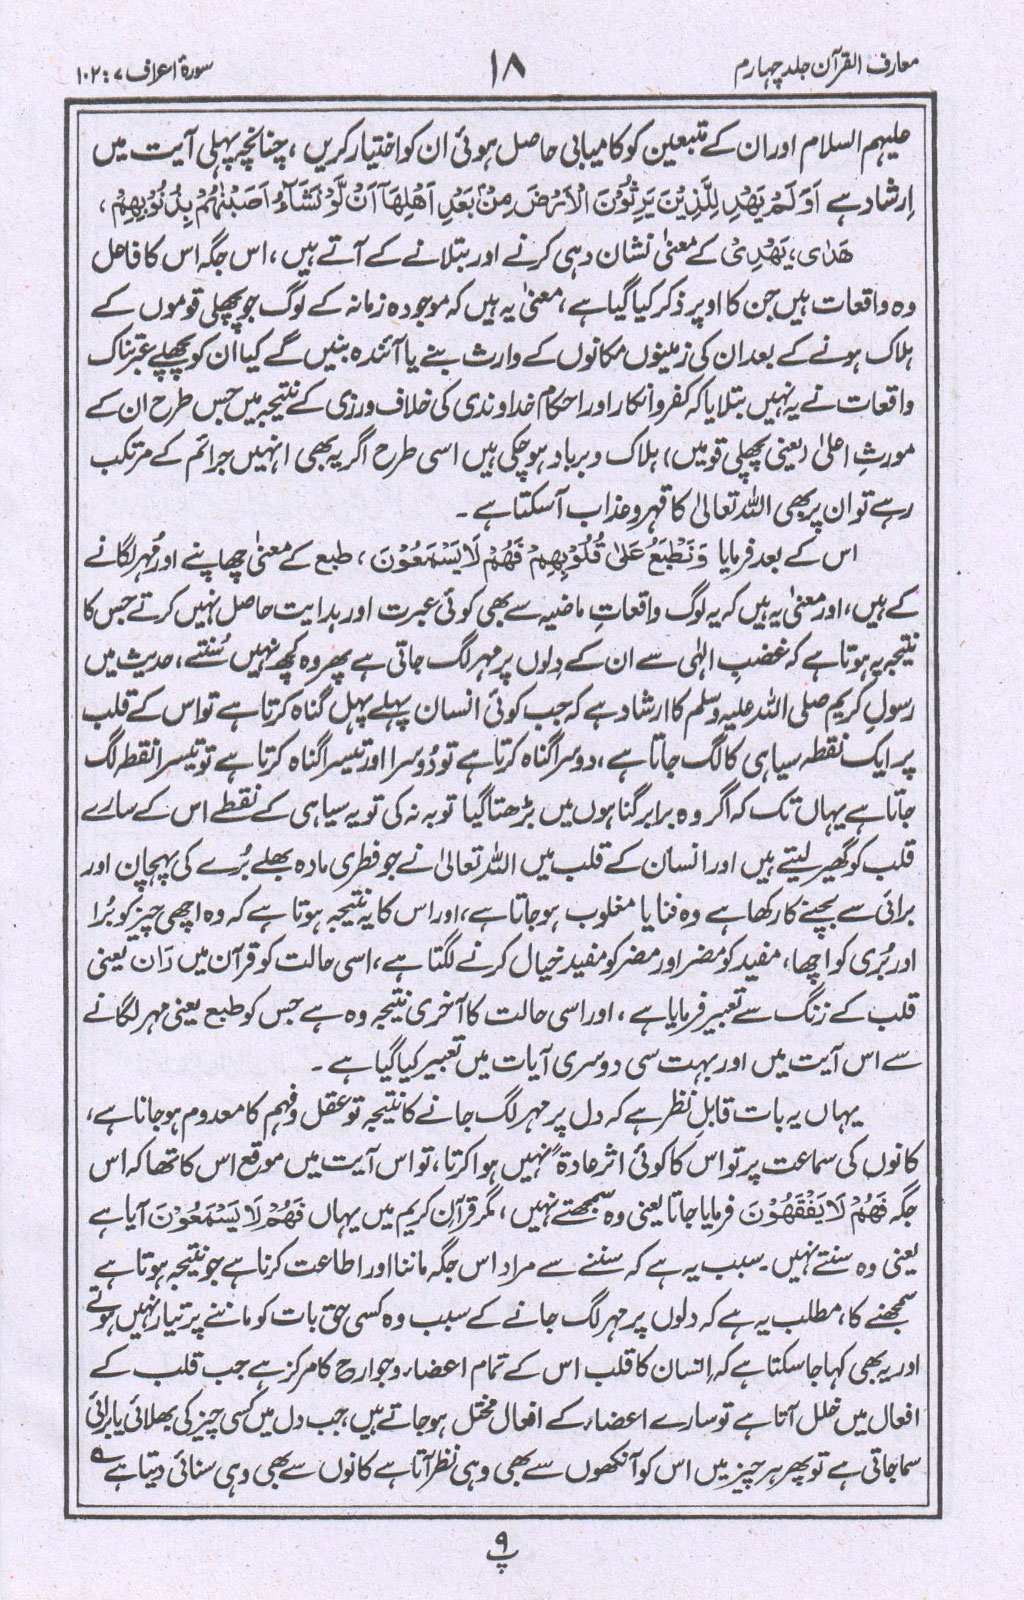 معارف القرآن جلد چہارم
۱۸
سورۂ اعراف ۷ : ۱۰۲
علیہم السلام اور ان کے متبعین کو کامیابی حاصل ہوئی ان کو اختیار کریں ، چنانچہ پہلی آیت میں
اِرشاد ہے اَوَلَمْ یَهْدِ لِلَّذِیْنَ یَرِثُوْنَ الْاَرْضَ مِنْۢ بَعْدِ اَهْلِهَآ اَنْ لَّوْ نَشَآءُ اَصَبْنٰهُمْ بِذُنُوْبِهِمْ ،
هَدٰی ، یَهْدِیْ کے معنیٰ نشان دہی کرنے اور بتلانے کے آتے ہیں ، اس جگہ اس کا فاعل
وہ واقعات ہیں جن کا اوپر ذکر کیا گیا ہے ، معنیٰ یہ ہیں کہ موجودہ زمانہ کے لوگ جو پچھلی قوموں کے
ہلاک ہونے کے بعد ان کی زمینوں مکانوں کے وارث بنے یا آئندہ بنیں گے کیا ان کو پچھلے عبرتناک
واقعات نے یہ نہیں بتلایا کہ کفر و انکار اور احکام خداوندی کی خلاف ورزی کے نتیجہ میں جس طرح ان کے
مورثِ اعلیٰ (یعنی پچھلی قومیں) ہلاک و برباد ہو چکی ہیں اسی طرح اگر یہ بھی انہیں جرائم کے مرتکب
رہے تو ان پر بھی اللہ تعالیٰ کا قہر و عذاب آسکتا ہے ۔
اس کے بعد فرمایا وَنَطْبَعُ عَلٰی قُلُوْبِهِمْ فَهُمْ لَا یَسْمَعُوْنَ ، طبع کے معنیٰ چھاپنے اور مُہر لگانے
کے ہیں ، اور معنیٰ یہ ہیں کہ یہ لوگ واقعاتِ ماضیہ سے بھی کوئی عبرت اور ہدایت حاصل نہیں کرتے جس کا
نتیجہ یہ ہوتا ہے کہ غضبِ الٰہی سے ان کے دلوں پر مہر لگ جاتی ہے پھر وہ کچھ نہیں سُنتے ، حدیث میں
رسولِ کریم صلی اللہ علیہ وسلم کا ارشاد ہے کہ جب کوئی انسان پہلے پہل گناہ کرتا ہے تو اس کے قلب
پر ایک نقطہ سیاہی کا لگ جاتا ہے ، دوسرا گناہ کرتا ہے تو دُوسرا اور تیسرا گناہ کرتا ہے تو تیسرا نقطہ لگ
جاتا ہے یہاں تک کہ اگر وہ برابر گناہوں میں بڑھتا گیا توبہ نہ کی تو یہ سیاہی کے نقطے اس کے سارے
قلب کو گھیر لیتے ہیں اور انسان کے قلب میں اللہ تعالیٰ نے جو فطری مادہ بھلے بُرے کی پہچان اور
برائی سے بچنے کا رکھا ہے وہ فنا یا مغلوب ہو جاتا ہے ، اور اس کا یہ نتیجہ ہوتا ہے کہ وہ اچھی چیز کو بُرا
اور بُری کو اچھا ، مفید کو مضر اور مضر کو مفید خیال کرنے لگتا ہے ، اسی حالت کو قرآن میں رَان یعنی
قلب کے زنگ سے تعبیر فرمایا ہے ، اور اسی حالت کا آخری نتیجہ وہ ہے جس کو طبع یعنی مہر لگانے
سے اس آیت میں اور بہت سی دوسری آیات میں تعبیر کیا گیا ہے ۔
یہاں یہ بات قابلِ نظر ہے کہ دل پر مہر لگ جانے کا نتیجہ تو عقل و فہم کا معدوم ہو جانا ہے ،
کانوں کی سماعت پر تو اس کا کوئی اثر عادۃً نہیں ہوا کرتا ، تو اس آیت میں موقع اس کا تھا کہ اس
جگہ فَهُمْ لَا یَفْقَهُوْنَ فرمایا جاتا یعنی وہ سمجھتے نہیں ، مگر قرآن کریم میں یہاں فَهُمْ لَا یَسْمَعُوْنَ آیا ہے
یعنی وہ سنتے نہیں ۔ سبب یہ ہے کہ سننے سے مراد اس جگہ ماننا اور اطاعت کرنا ہے جو نتیجہ ہوتا ہے
سمجھنے کا ، مطلب یہ ہے کہ دلوں پر مہر لگ جانے کے سبب وہ کسی حق بات کو ماننے پر تیار نہیں ہوتے
اور یہ بھی کہا جا سکتا ہے کہ اِنسان کا قلب اس کے تمام اعضاء و جوارح کا مرکز ہے جب قلب کے
افعال میں خلل آتا ہے تو سارے اعضاء کے افعال مختل ہو جاتے ہیں ، جب دل میں کسی چیز کی بھلائی یا برائی
سما جاتی ہے تو پھر ہر چیز میں اس کو آنکھوں سے بھی وہی نظر آتا ہے کانوں سے بھی وہی سنائی دیتا ہے
۹
پ